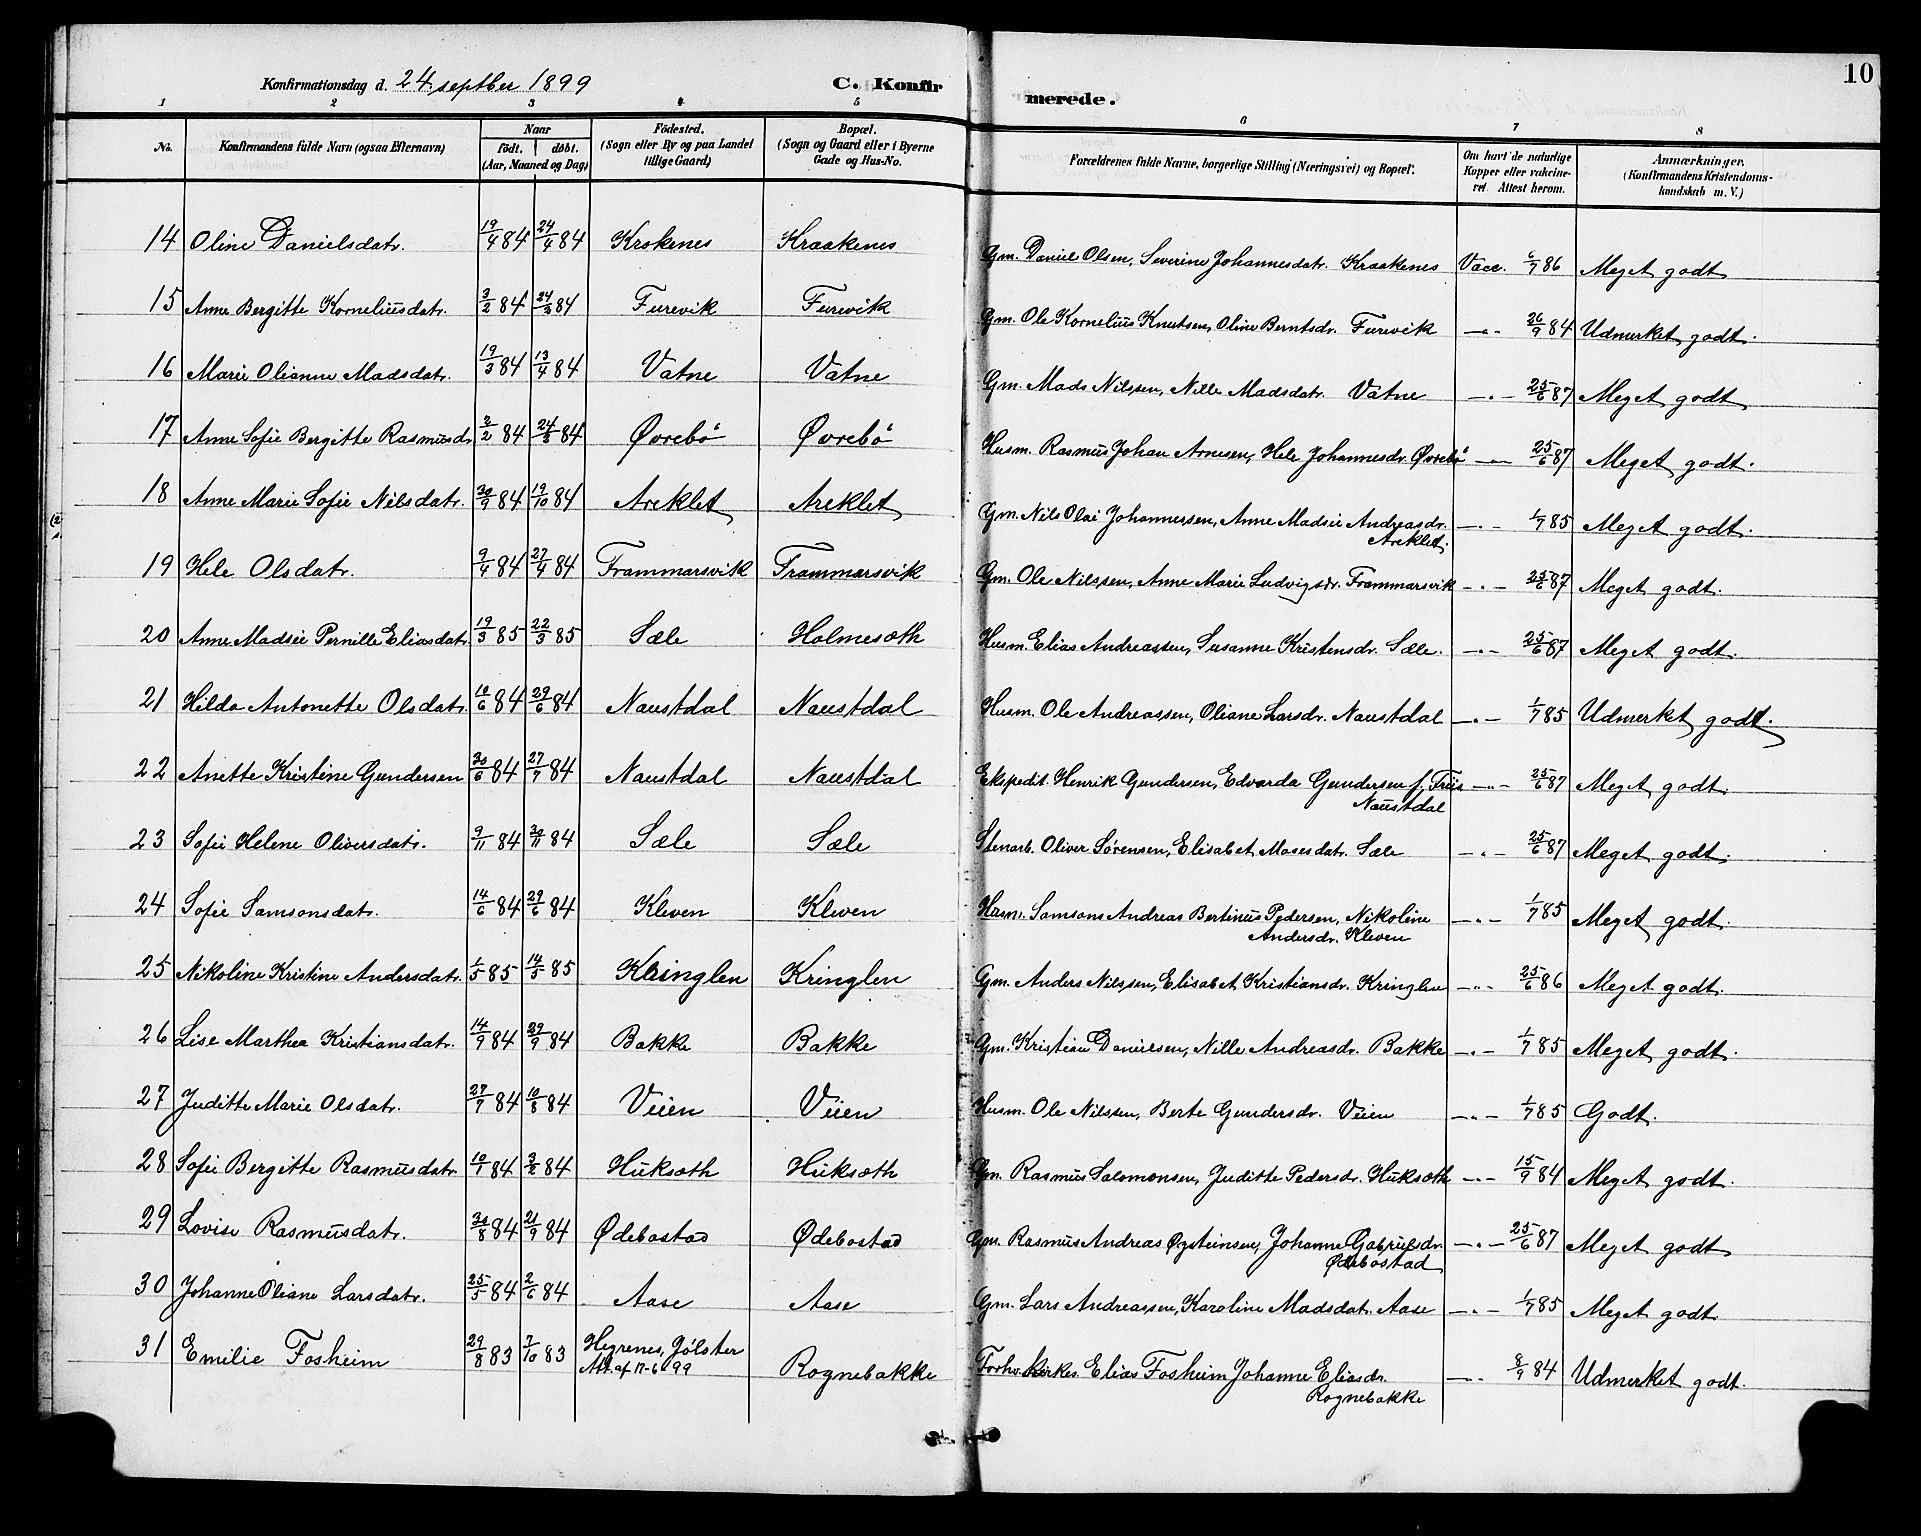 Konfirmationsdag d. 24. septber 1899
C. Konfirmerede.
10
1 2 3 4 5 6 7 8
No.
Konfirmandens fulde Navn (ogsaa Efternavn)
Naar
födt. döbt.
(Aar, Maaned og Dag)
Födested.
(Sogn eller By og paa Landet
tillige Gaard)
Bopæl.
(Sogn og Gaard eller i Byerne
Gade og Hus-No.
Forældrenes fulde Navne, borgerlige Stilling (Næringsvei) og Bopæl.
Om havt de naturlige
Kopper eller vakcine-
ret. Attest herom.
Anmærkninger.
(Konfirmandens Kristendoms-
kundskab m. V.)
14 Oline Danielsdatr. 19/4 84 24/4 84 Krokenes Kraakenes Gm. Daniel Olsen, Severine Johannesdatr. Kraakenes Vacc. 6/7 86 Meget godt
15 Anne Bergitte Korneliusdatr. 3/2 84 84 Furevik Furevik Gm. Ole Kornelius Knutsen, Oline Berntsdr. Furevik —"— 26/9 84 Udmerket godt.
16 Marie Olianne Madsdatr. 19/3 84 13/4 84 Vatne Vatne Gm. Mads Nilssen, Nille Madsdatr. Vatne —"— 25/6 87 Meget godt
17 Anne Sofie Bergitte Rasmusd. 84 84 Øvrebö Øvrebö Husm. Rasmus Johan Arnesen, Hele Johannesdr. Øvrebö —"— 25/6 87 Meget godt.
18 Anne Marie Sofie Nilsdatr. 30/9 84 19/10 84 Areklet Areklet Gm. Nils Olai Johannessen, Anne Madsie Andreasdr. —"— 1/7 85 Meget godt.
Areklet.
19 Hele Olsdatr. 9/4 84 27/4 84 Frammarsvik Frammarsvik Gm. Ole Nilssen, Anne Marie Ludvigsdr. Frammarsvik —"— 25/6 87 Meget godt.
20 Anne Madsie Pernille Eliasdatr. 19/3 85 22/3 85 Sæle Holmesæth Husm. Elias Andreassen, Susanne Kristensdr. Sæle. —"— 25/6 87 Meget godt.
21 Hilda Antonette Olsdatr. 10/6 84 29/6 84 Naustdal Naustdal Husm. Ole Andreassen, Oliane Larsdr. Naustdal —"— 1/7 85 Udmerket godt.
22 Anette Kristine Gundersen 30/6 84 27/7 84 Naustdal Naustdal Ekspedit. Henrik Gundersen, Edvarda Gundersen f. Friis —"— 25/6 87 Meget godt.
Naustdal
23 Sofie Helene Oliversdatr. 9/11 84 30/11 84 Sæle Sæle Stenarb. Oliver Sørensen, Elisabet Mosesdatr. Sæle —"— 25/6 87 Meget godt.
24 Sofie Samsonsdatr. 14/6 84 29/6 84 Kleven Kleven Husm. Samsons Andreas Bertinus Pedersen, Nikoline —"— 1/7 85 Meget godt.
Andersdr. Kleven
25 Nikoline Kristine Andersdatr. 1/5 85 14/5 85 Kringlen Kringlen Gm. Anders Nilssen, Elisabet Kristiansdr. Kringlen —"— 25/6 86 Meget godt.
26 Lise Marthea Kristiansdatr. 14/9 84 29/9 84 Bakke Bakke Gm. Kristian Danielsen, Nille Andreasdr. Bakke —"— 1/7 85 Meget godt.
27 Juditte Marie Olsdatr. 27/7 84 10/8 84 Veien Veien Husm. Ole Nilssen, Berte Gundersdr. Veien —"— 1/7 85 Godt.
28 Sofie Bergitte Rasmusdatr. 10/1 84 3/2 84 Huksæth Huksæth Gm. Rasmus Salomonsen, Juditte Pedersdr. Huksæth —"— 15/9 84 Meget godt.
29 Lovise Rasmusdatr. 30/8 84 21/9 84 Ødebostad Ødebostad Gm. Rasmus Andreas Øysteinsen, Johanne Gabrielsdr. —"— 25/6 87 Meget godt
Ødebostad
30 Johanne Oliane Larsdatr. 25/5 84 2/6 84 Aase Aase Gm. Lars Andreassen, Karoline Madsdat. Aase —"— 1/7 85 Meget godt.
31 Emilie Fosheim 29/8 83 7/10 83 Hegrenes, Jölster Rognebakke Forhv. Kirkes. Elias Fosheim Johanne Eliasdr. —"— 8/9 84 Udmerket godt.
Att. af 17-6-99
Rognebakke